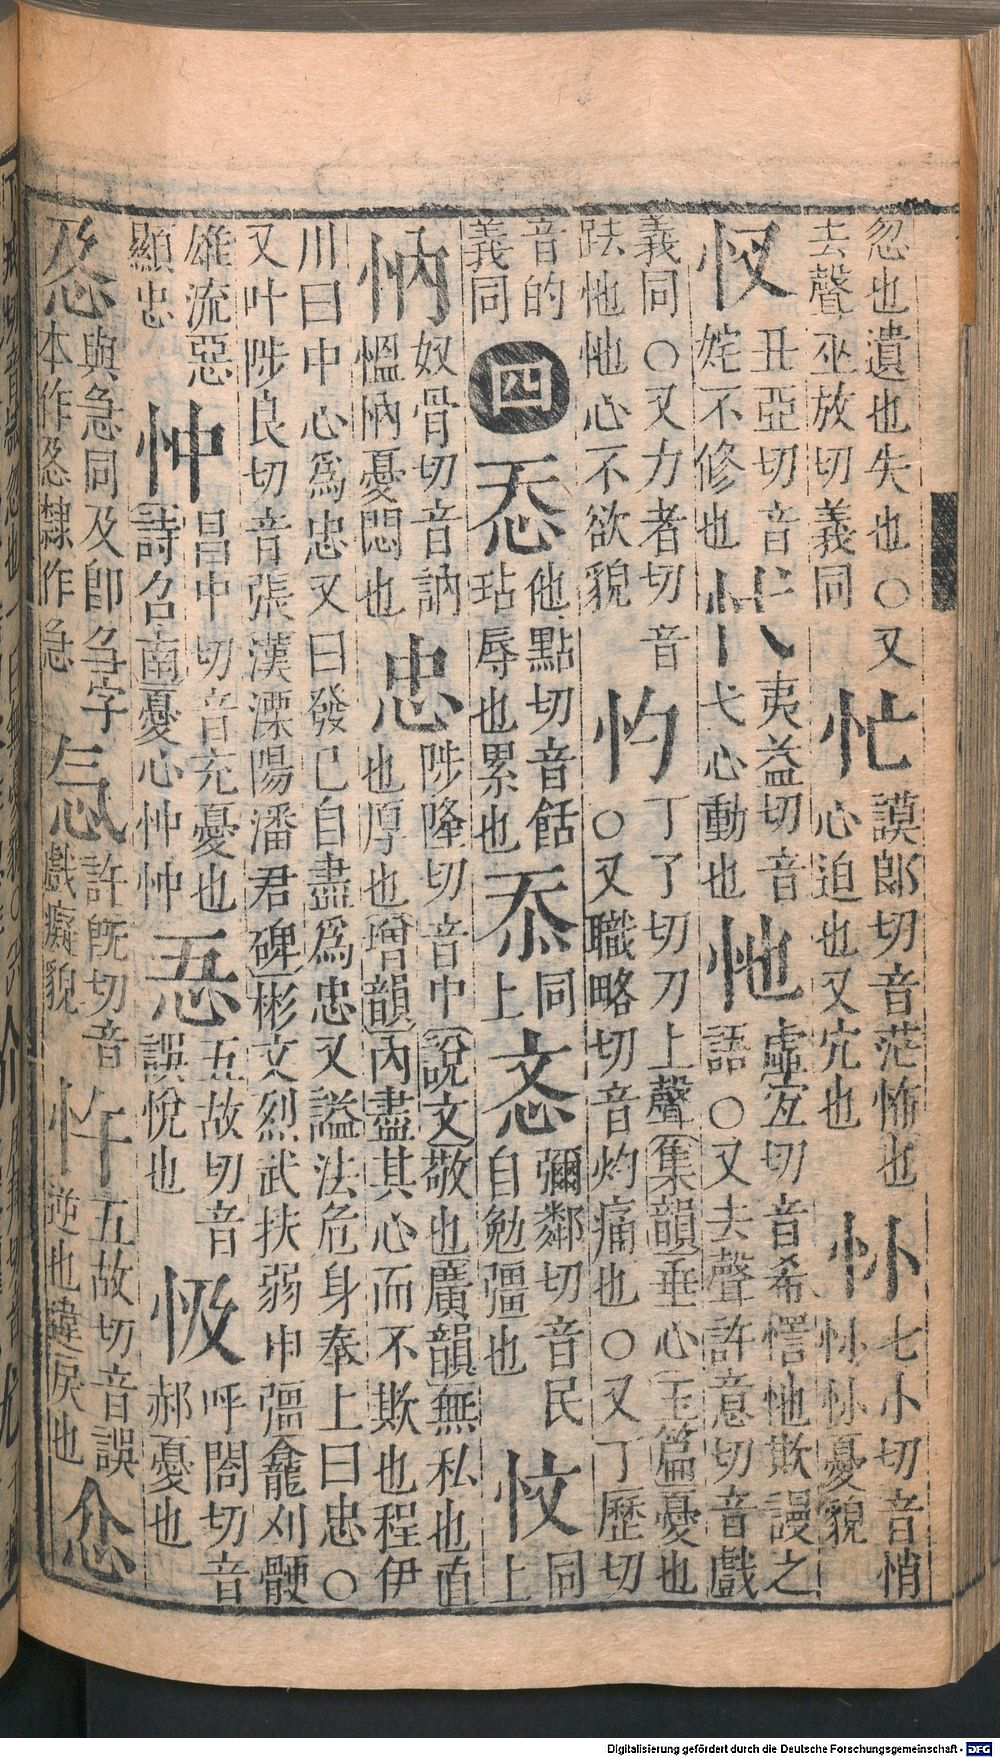 忽也遺也失也○又
去聲巫放切義同
忙
謨郎切音茫怖也
心迫也又宂也
㣺
七小切音悄
忄忄憂貌
㣾
丑亞切音
㛊不修也
忒
夷益切音
弋心動也
忚
虛宜切音希㦍忚欺謾之
語○又去聲許意切音戲
義同○又力者切音
䟦忚忚心不欲貌
忇
丁了切刀上聲集韻垂心玉篇憂也
○又職略切音灼痛也○又丁歷切
音的
義同
四
忝
他點切音餂
玷辱也累也
忝
同
上
忞
彌鄰切音民
自勉彊也
忟
同
上
㕯
奴骨切音訥
慍㕯憂悶也
忠
陟隆切音中說文敬也廣韻無私也直
也厚也增韻內盡其心而不欺也程伊
川曰中心爲忠又曰發己自盡爲忠又謚法危身奉上曰忠○
又叶陟良切音張漢溧陽潘君碑彬文烈武扶弱申彊龕刈骾
雄流惡
顯忠
忡
昌中切音充憂也
詩召南憂心忡忡
忢
五故切音
誤悅也
忣
呼閤切音
郝憂也
㤂
與急同及卽急字
本作㤂隸作急
忥
許旣切音
戲癡貌
忤
五故切音誤
逆也違戾也
忿
Digitalisierung gefördert durch die Deutsche Forschungsgemeinschaft - DFG